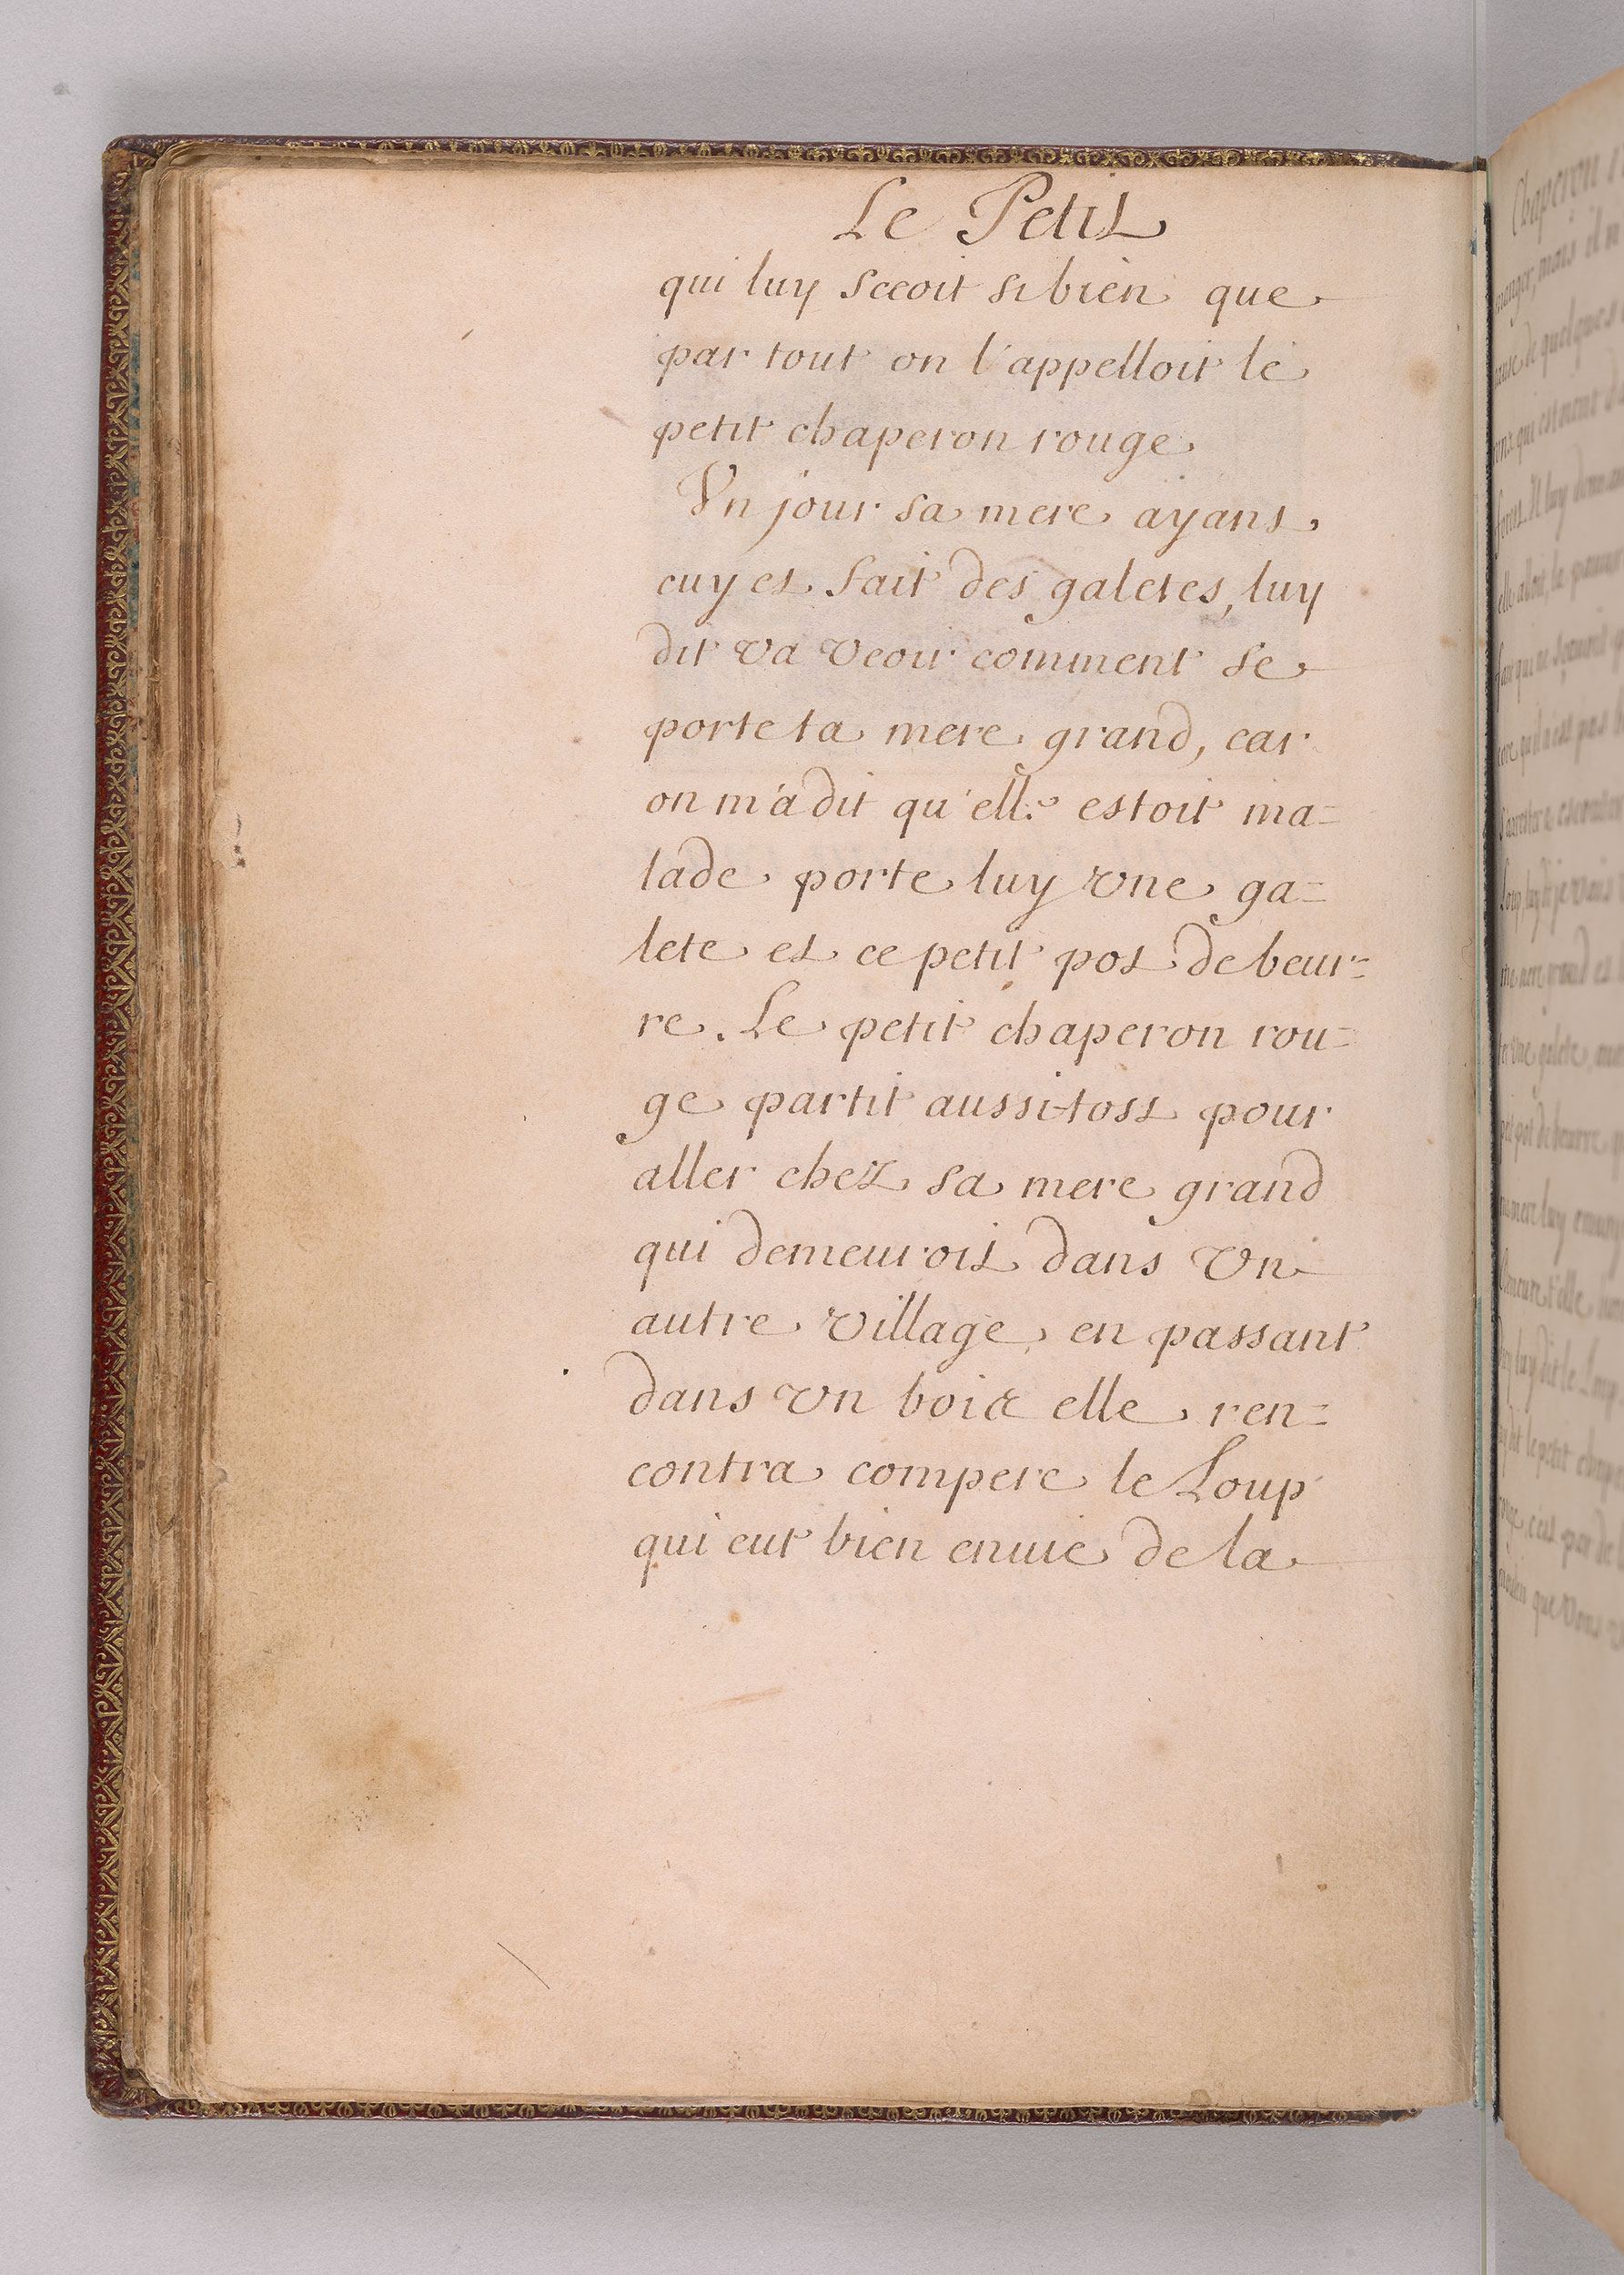 Le Petit
qui luy sceoit si bien que
par tout on l'appelloit le
petit chaperon rouge.
Vn jour sa mere ayant
cuy et fait des galetes, luy
dit va veoir comment se
porte ta mere grand, car
on m'a dit qu'elle estoit ma=
lade porte luy vne ga=
lete et ce petit pot de beur=
re. Le petit chaperon rou=
ge partit aussi-tost pour
aller chez sa mere grand
qui demeuroit dans vn
autre village, en passant
dans vn bois elle ren=
contra compere le Loup
qui eut bien enuie de la
Chaperon
manger, mais il n
de quelques
qui estoient d
forest. Il luy deman
elle alloit, le pauur
qui ne sçauoit
qu'il n'est pas
Loup luy dit je vais
mere grand et
vne galete, au
pot de beurre
mere luy enuoy
demeure t'elle
luy dit le Loup
dit le petit chap
c'est par de l
moulin que vous v